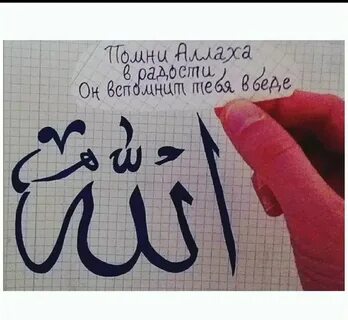 Помни Аллаха
в радости
Он вспомнит тебя в беде
الله